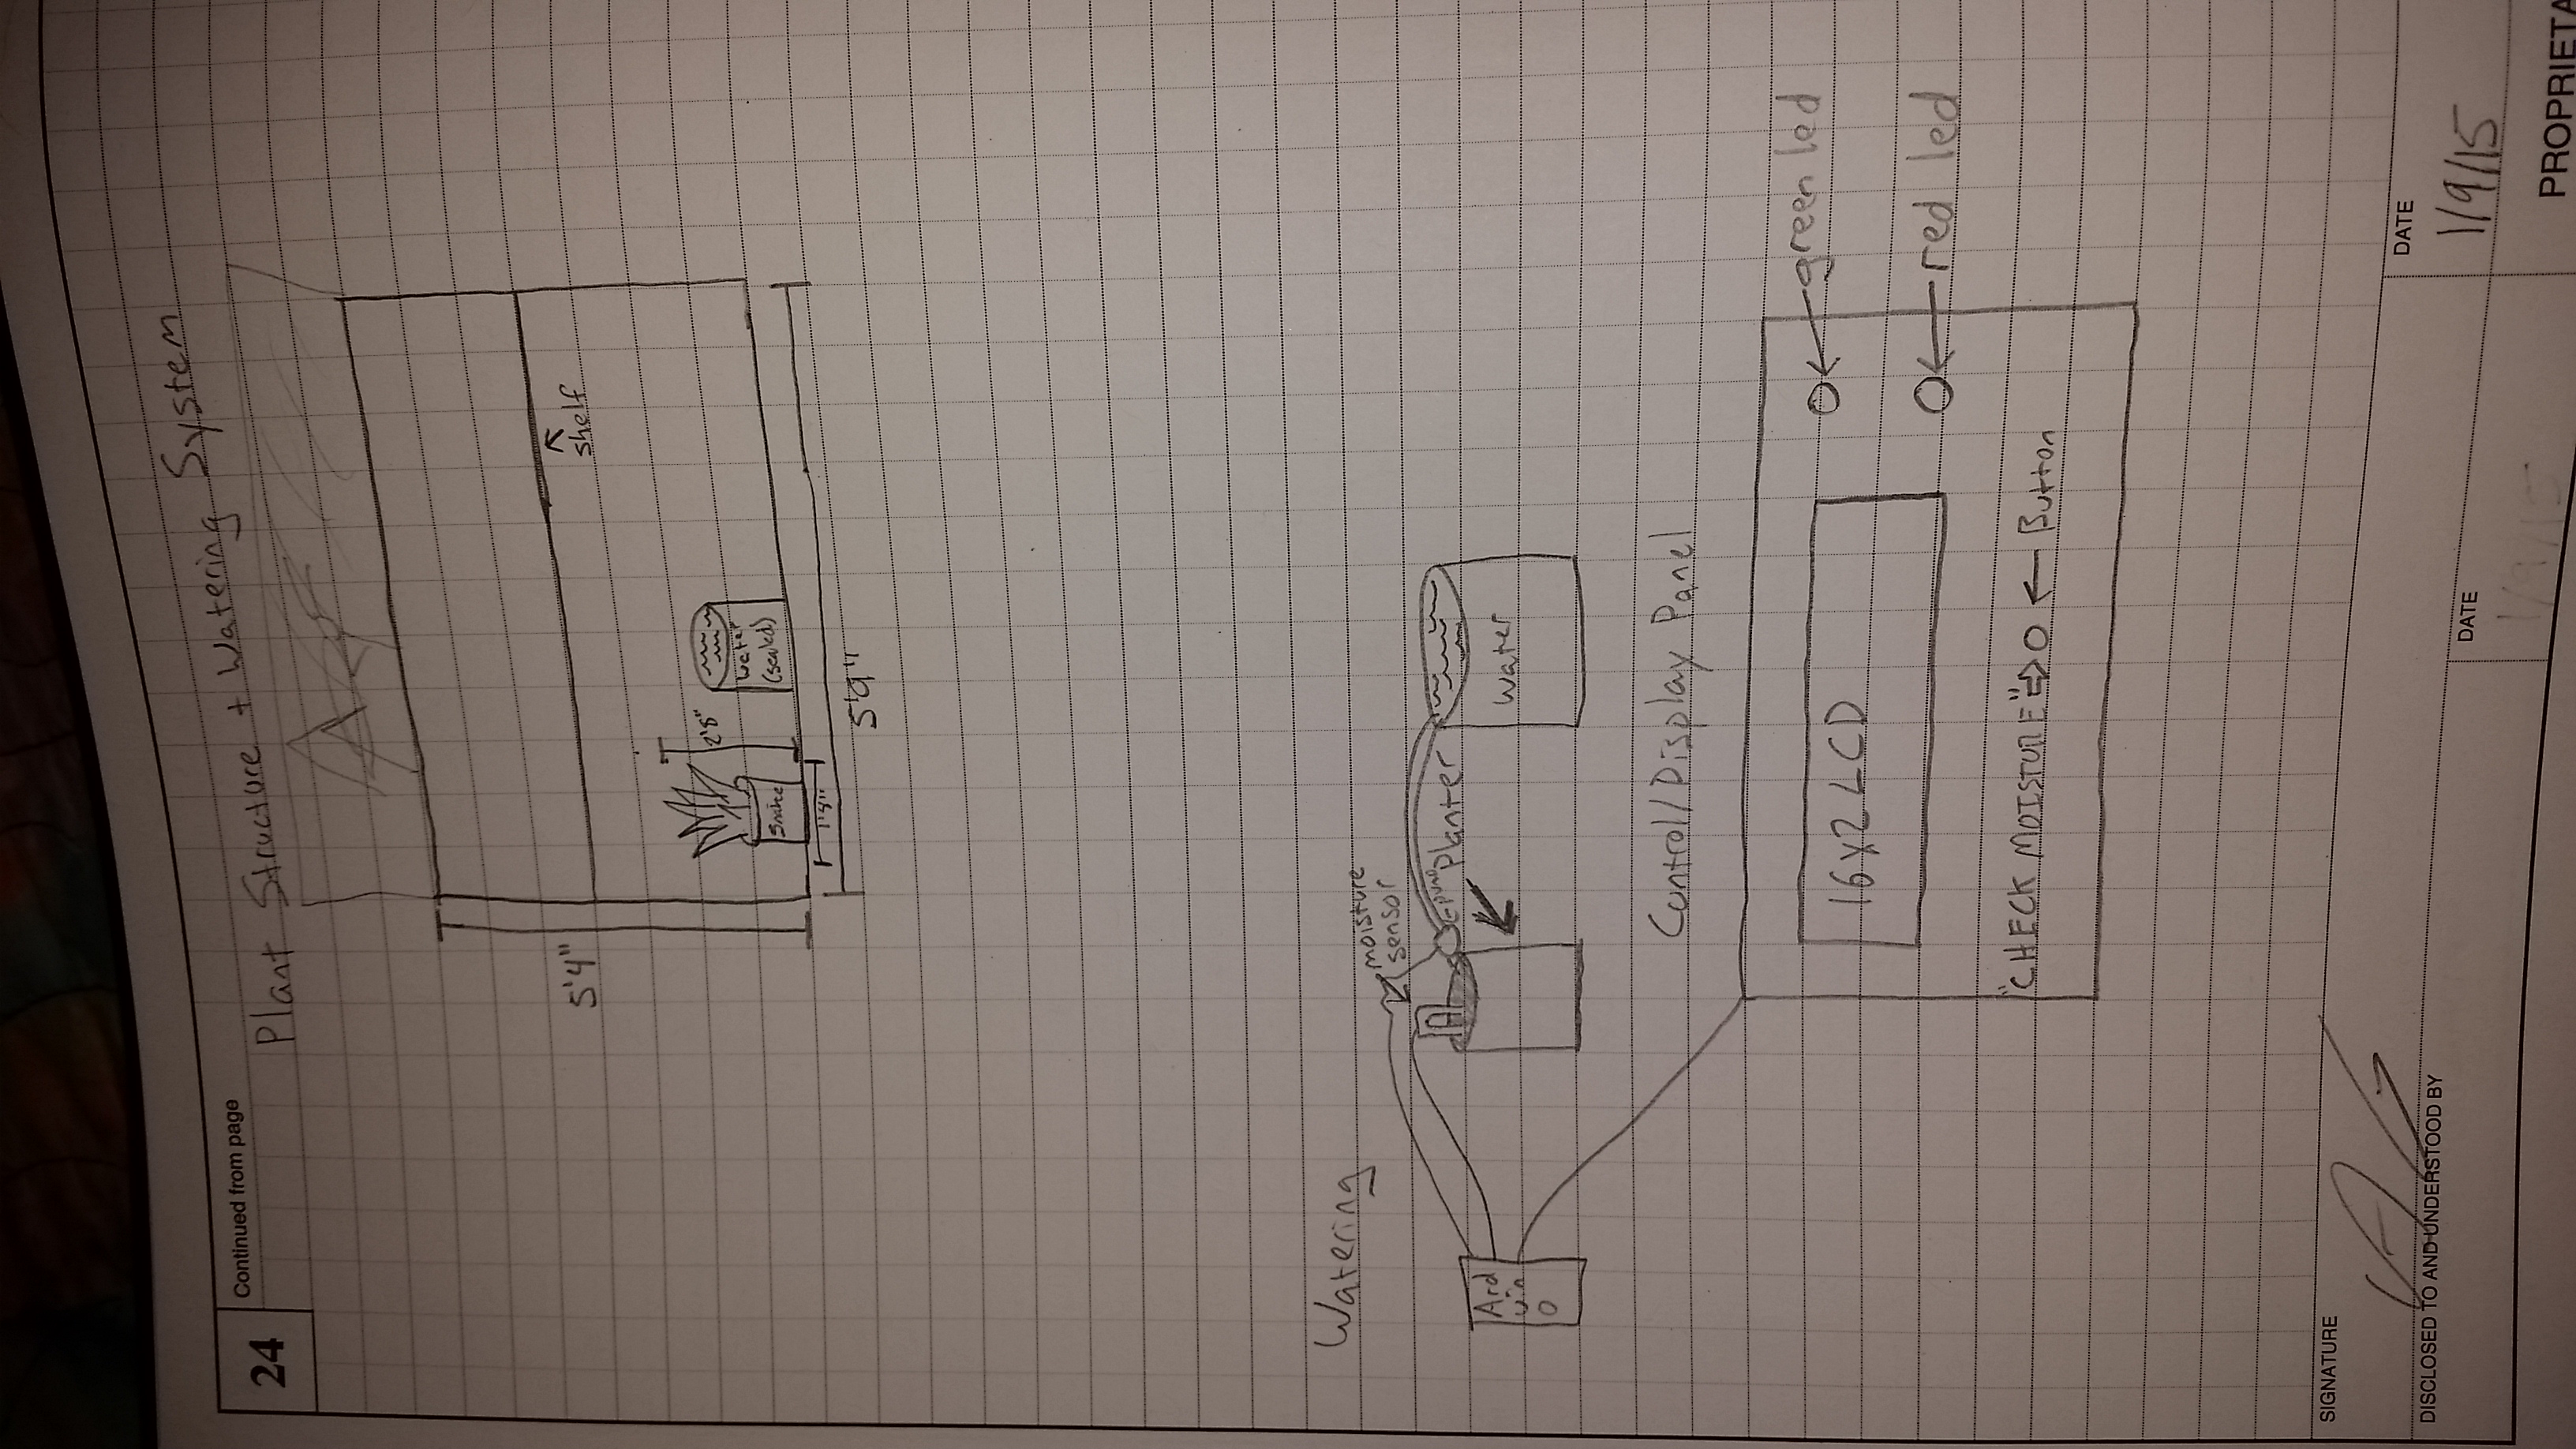 24
Continued from page
Plant Structure + Watering System
5'4"
shelf
2'8"
water
(sealed)
Snake
1'8"
5'9"
Watering
moisture
sensor
pump
Planter
Ard
uin
o
Water
Control/Display Panel
green led
16x2 LCD
red led
"CHECK MOISTURE" Button
SIGNATURE
DISCLOSED TO AND UNDERSTOOD BY
DATE
1/9/15
DATE
1/9/15
PROPRIETA